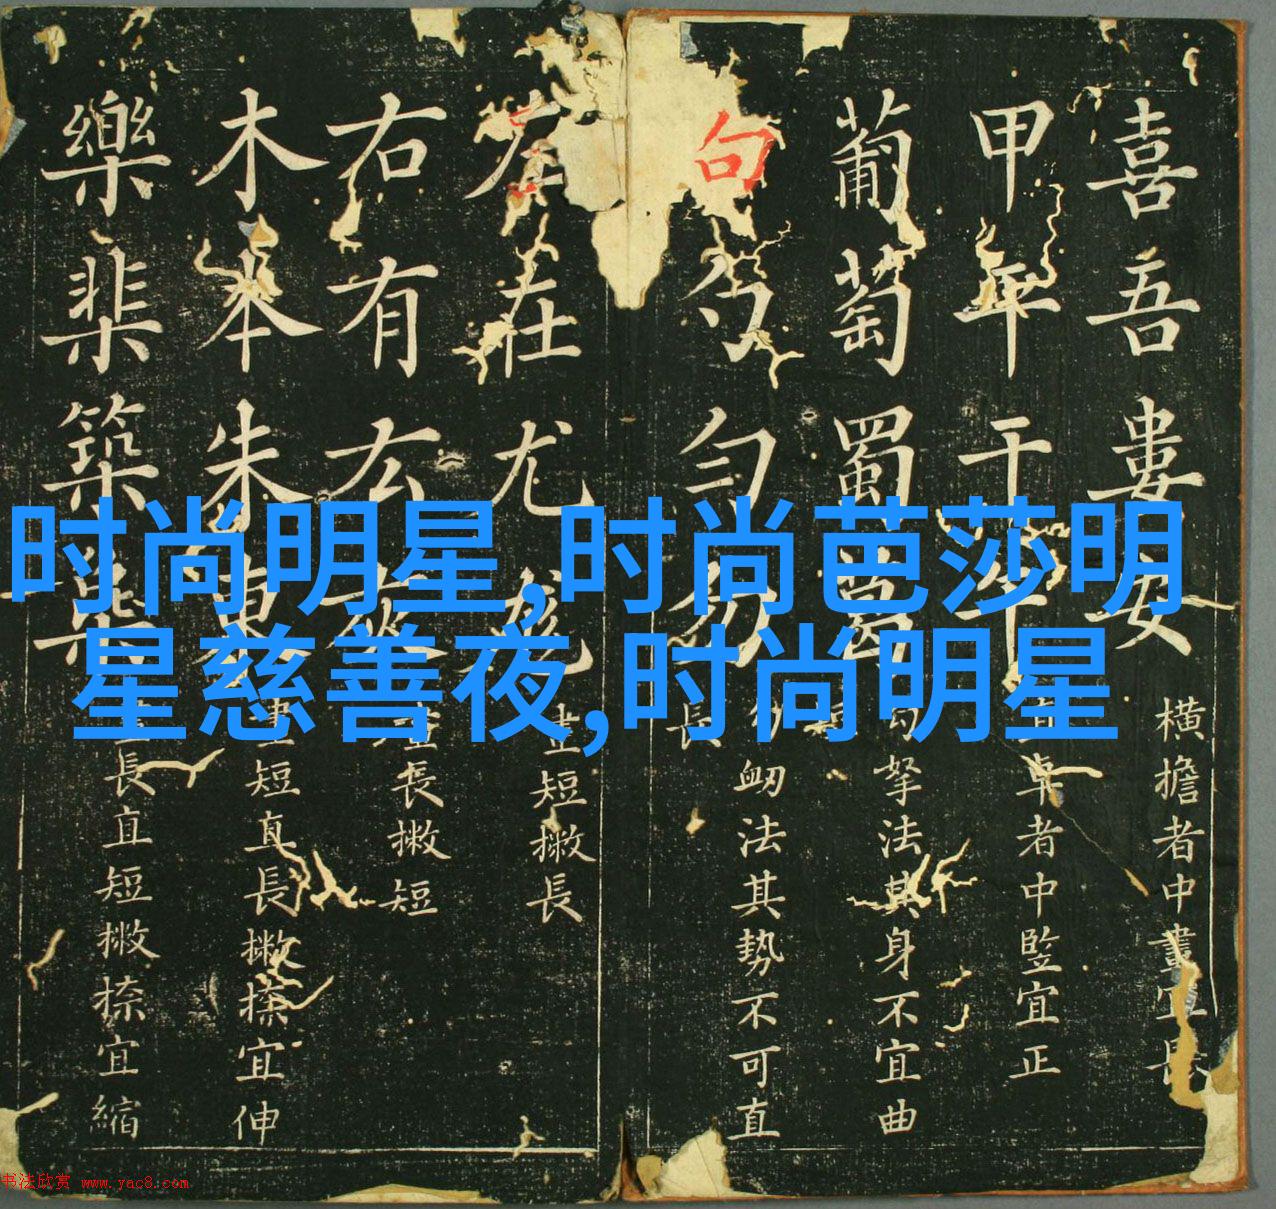 时尚明星,时尚芭莎明
星慈善夜,时尚明星
喜吾婁安
横擔者中畫宜長
甲平干午
卓者中竪宜正
葡萄蜀葛
勾拏法其身不宜曲
句勺匀勿
衂法其势不可直
長
左在尤尨
短撇長
右有
長撇短
木本朱東
短直長撇捺宜伸
樂棐築
長直短撇捺宜縮
书法欣赏 www.yac8.com